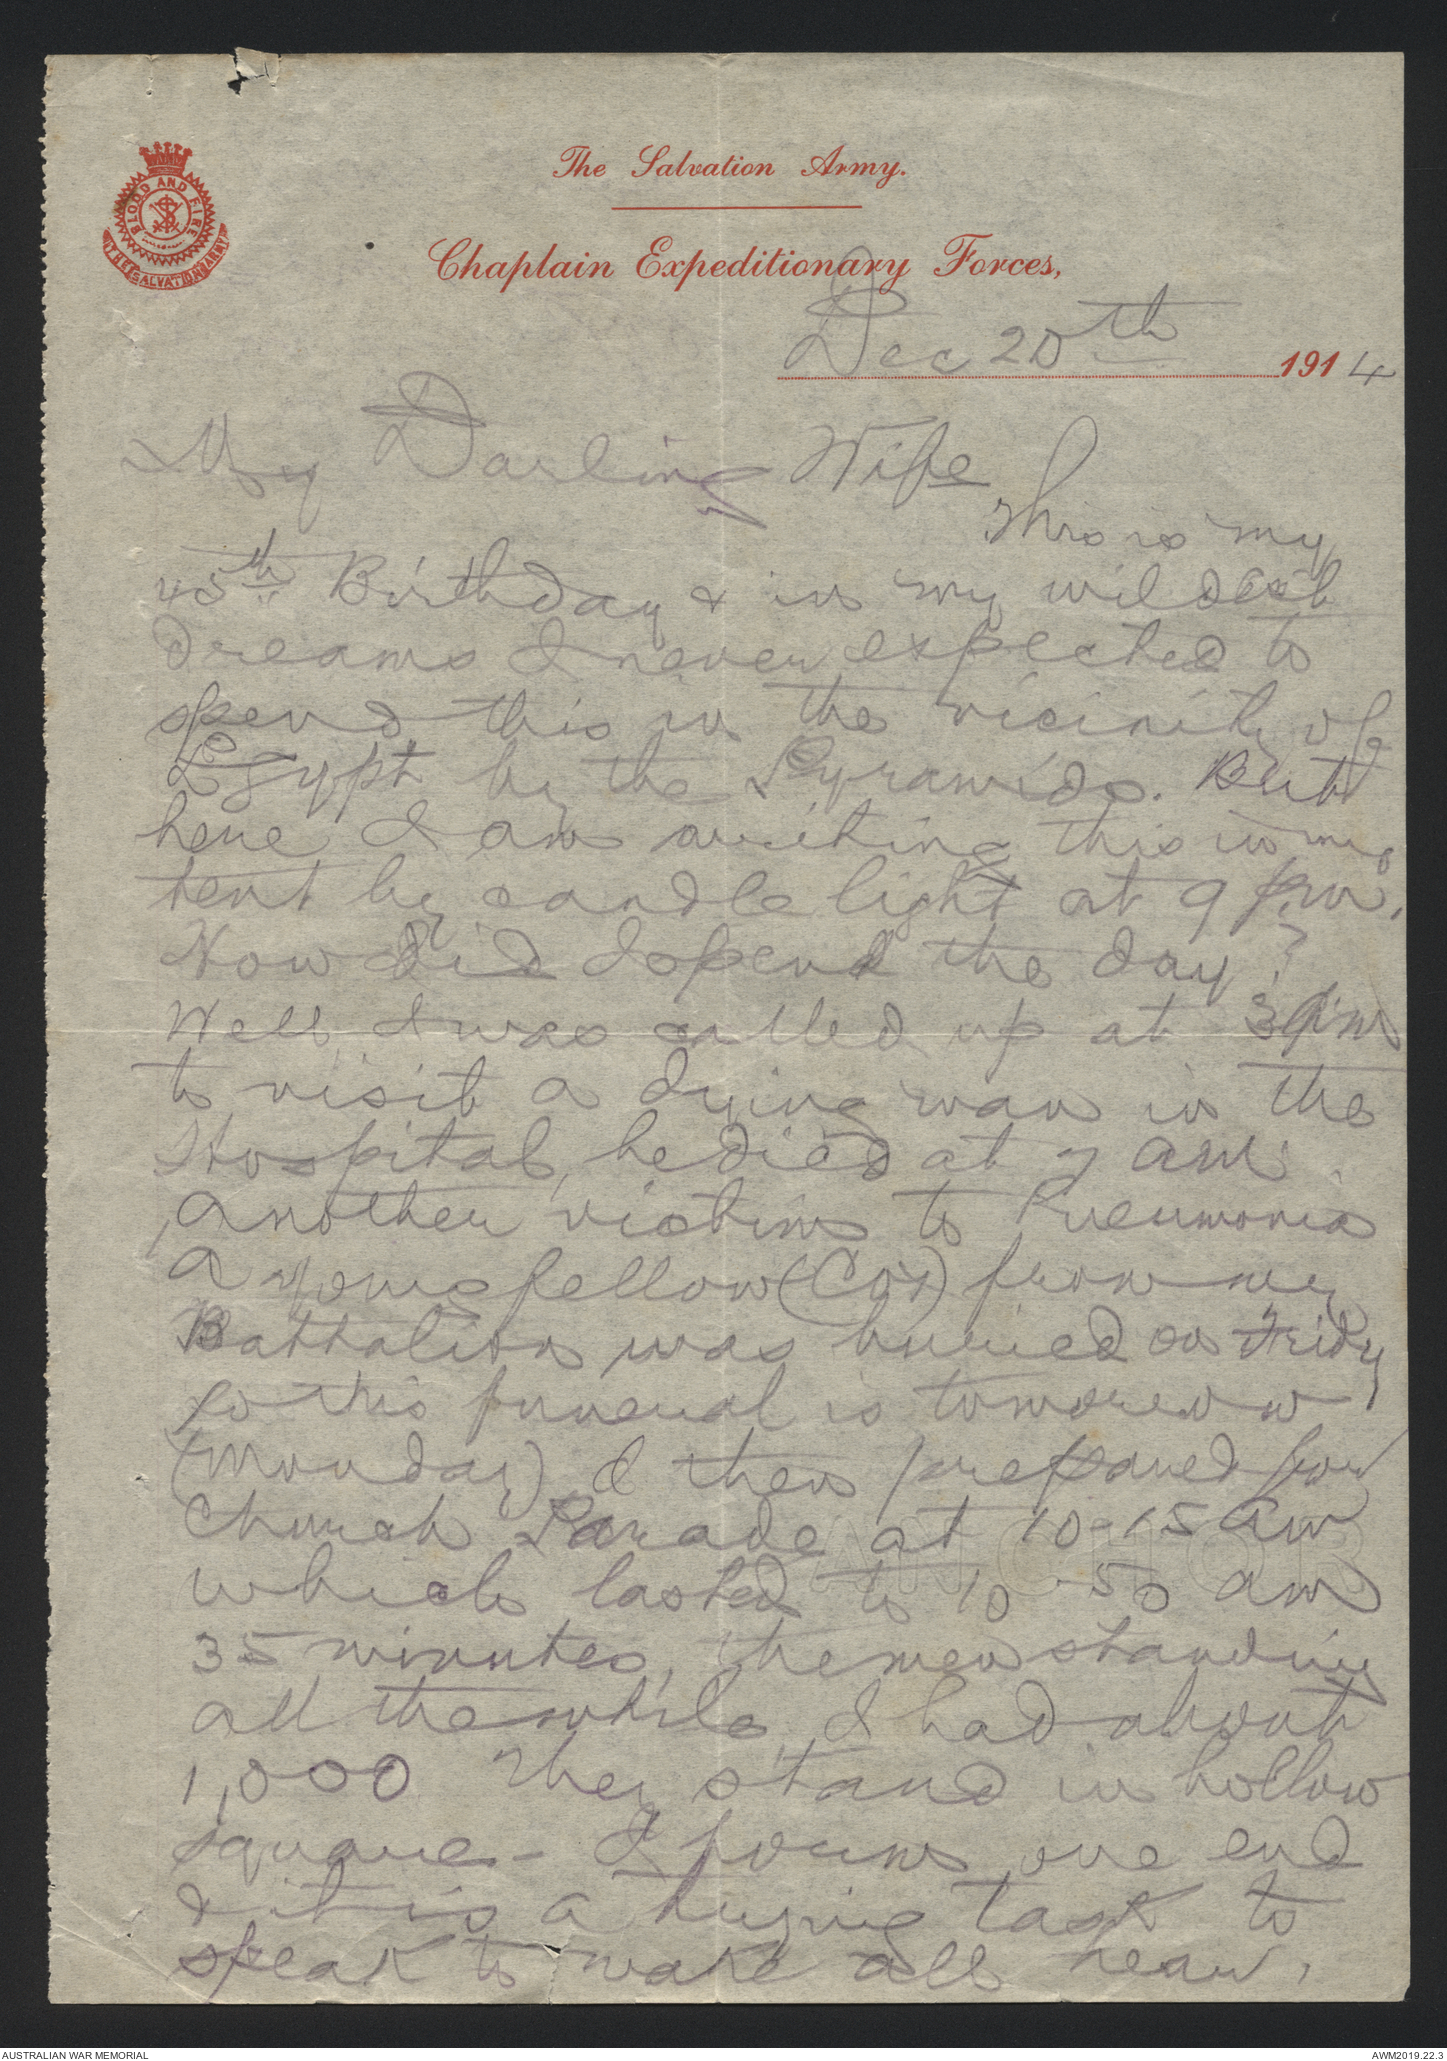 The Salvation Army.
BLOOD AND FIRE
THE SALVATION ARMY
Chaplain Expeditionary Forces,
Dec 20th 1914
My Darling Wife
This is my
45th Birthday & in my wildest
dreams I never expected to
spend this in the vicinity of
Egypt by the Pyramids. But
here I am writing this in my
tent by candle light at 9 pm.
How did I spend the day?
Well I was called up at 3 am
to visit a dying man in the
Hospital, he died at 7 am.
Another victim to Pneumonia
A young fellow (Cox) from my
Battalion was buried on Fridy
so this funeral is tomorrow
(Monday) I then prepared for
Church Parade at 10-15 am
which lasted to 10-50 am
35 minutes, the men standing
all the while, I had about
1,000 They stand in hollow
square - I form one end
& it is a trying task to
speak to make all hear.
ANCHOR
AUSTRALIAN WAR MEMORIAL
AWM2019.22.3